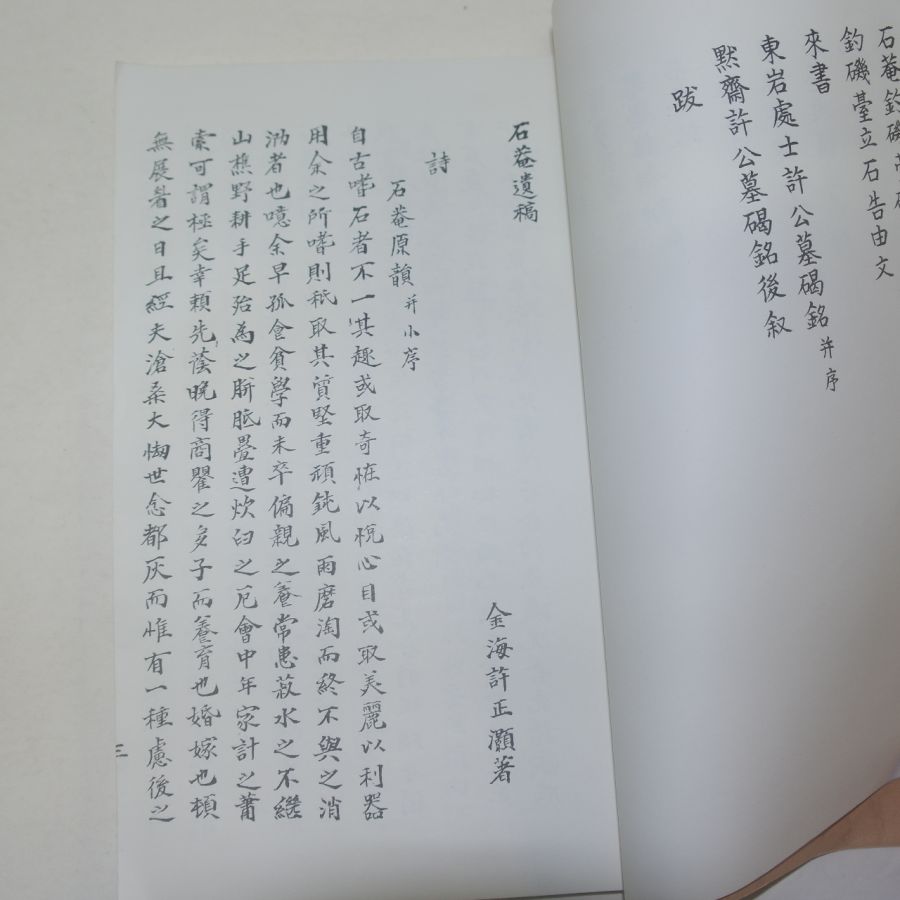 石菴釣磯臺
釣磯臺立石告由文
來書
東岩處士許公墓碣銘 并序
默齋許公墓碣銘後叙
跋
石菴遺稿
金海許正灝著
詩
石菴原韻 并小序
自古嗜石者不一其趣或取奇怪以悅心目或取美麗以利器
用余之所嗜則秖取其質堅重頑鈍風雨磨淘而終不與之消
泐者也噫余早孤食貧學而未卒偏親之養常患菽水之不繼
山樵野耕手足殆為之胼胝疊遭炊臼之厄會中年家計之蕭
索可謂極矣幸賴先蔭晚得商瞿之多子而養育也婚嫁也頓
無展眉之日且經夫滄桑大㤥世念都灰而惟有一種慮後之
三